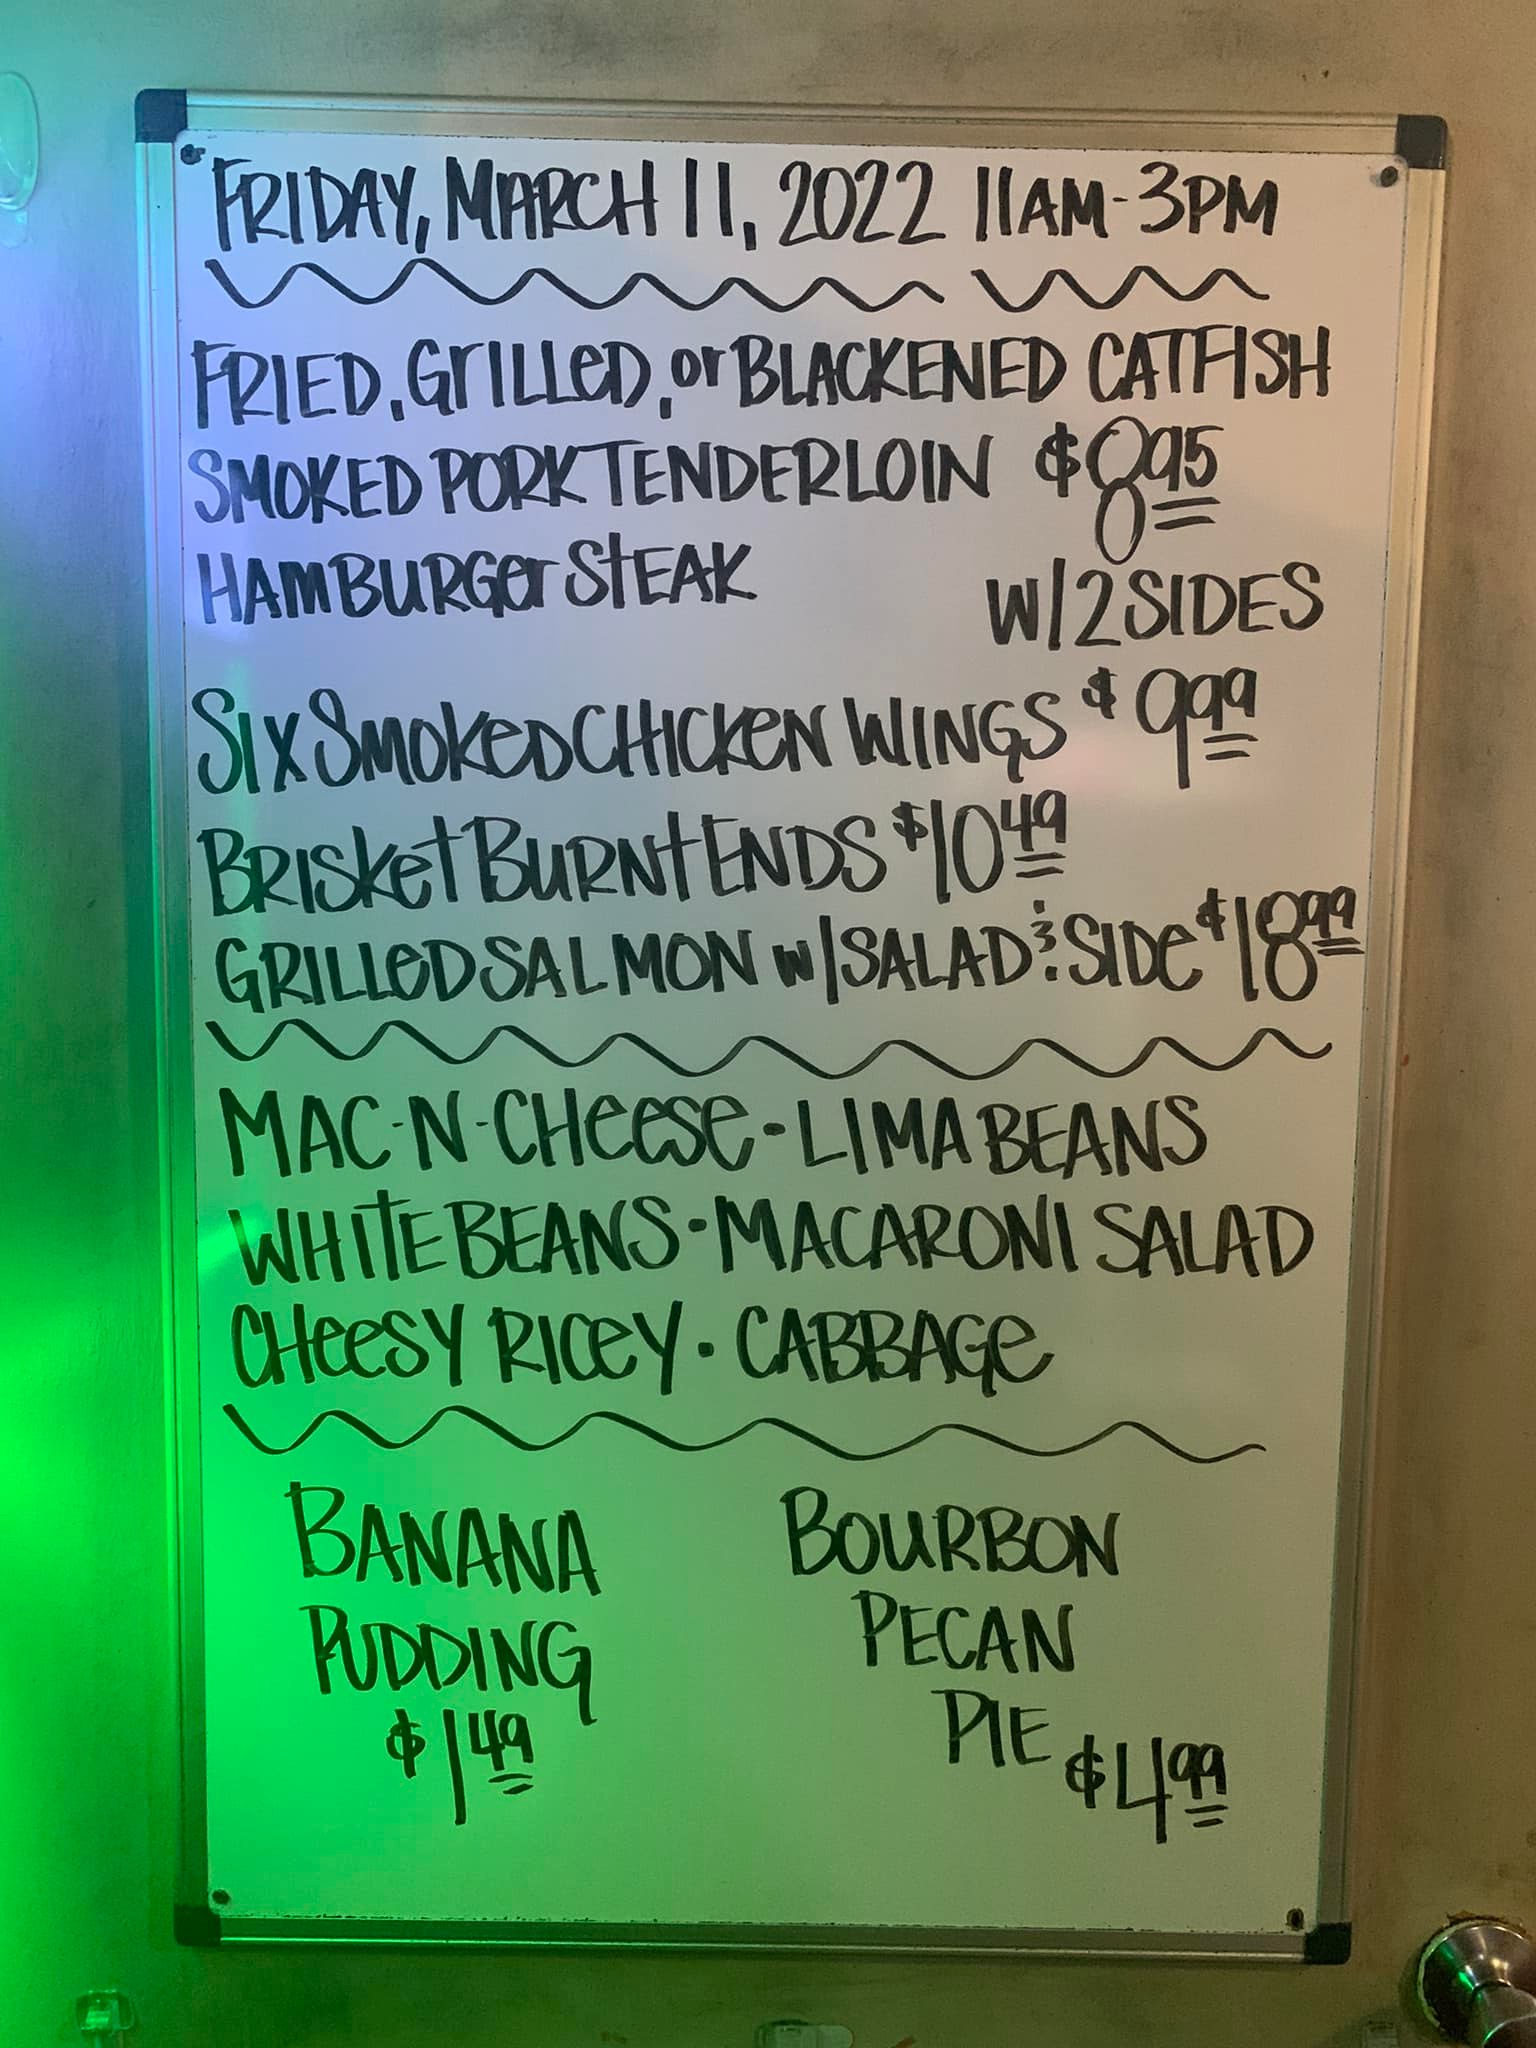 FRIDAY, MARCH 11, 2022 11AM-3PM
FRIED, GRILLED, or BLACKENED CATFISH
SMOKED PORK TENDERLOIN $8.95
HAMBURGER STEAK
W/2 SIDES
SIX SMOKED CHICKEN WINGS $9.99
BRISKET BURNT ENDS $10.49
GRILLED SALMON w/SALAD & SIDE $18.99
MAC-N-CHEESE • LIMA BEANS
WHITE BEANS • MACARONI SALAD
CHEESY RICEY • CABBAGE
BANANA
PUDDING
$1.49
BOURBON
PECAN
PIE
$4.99